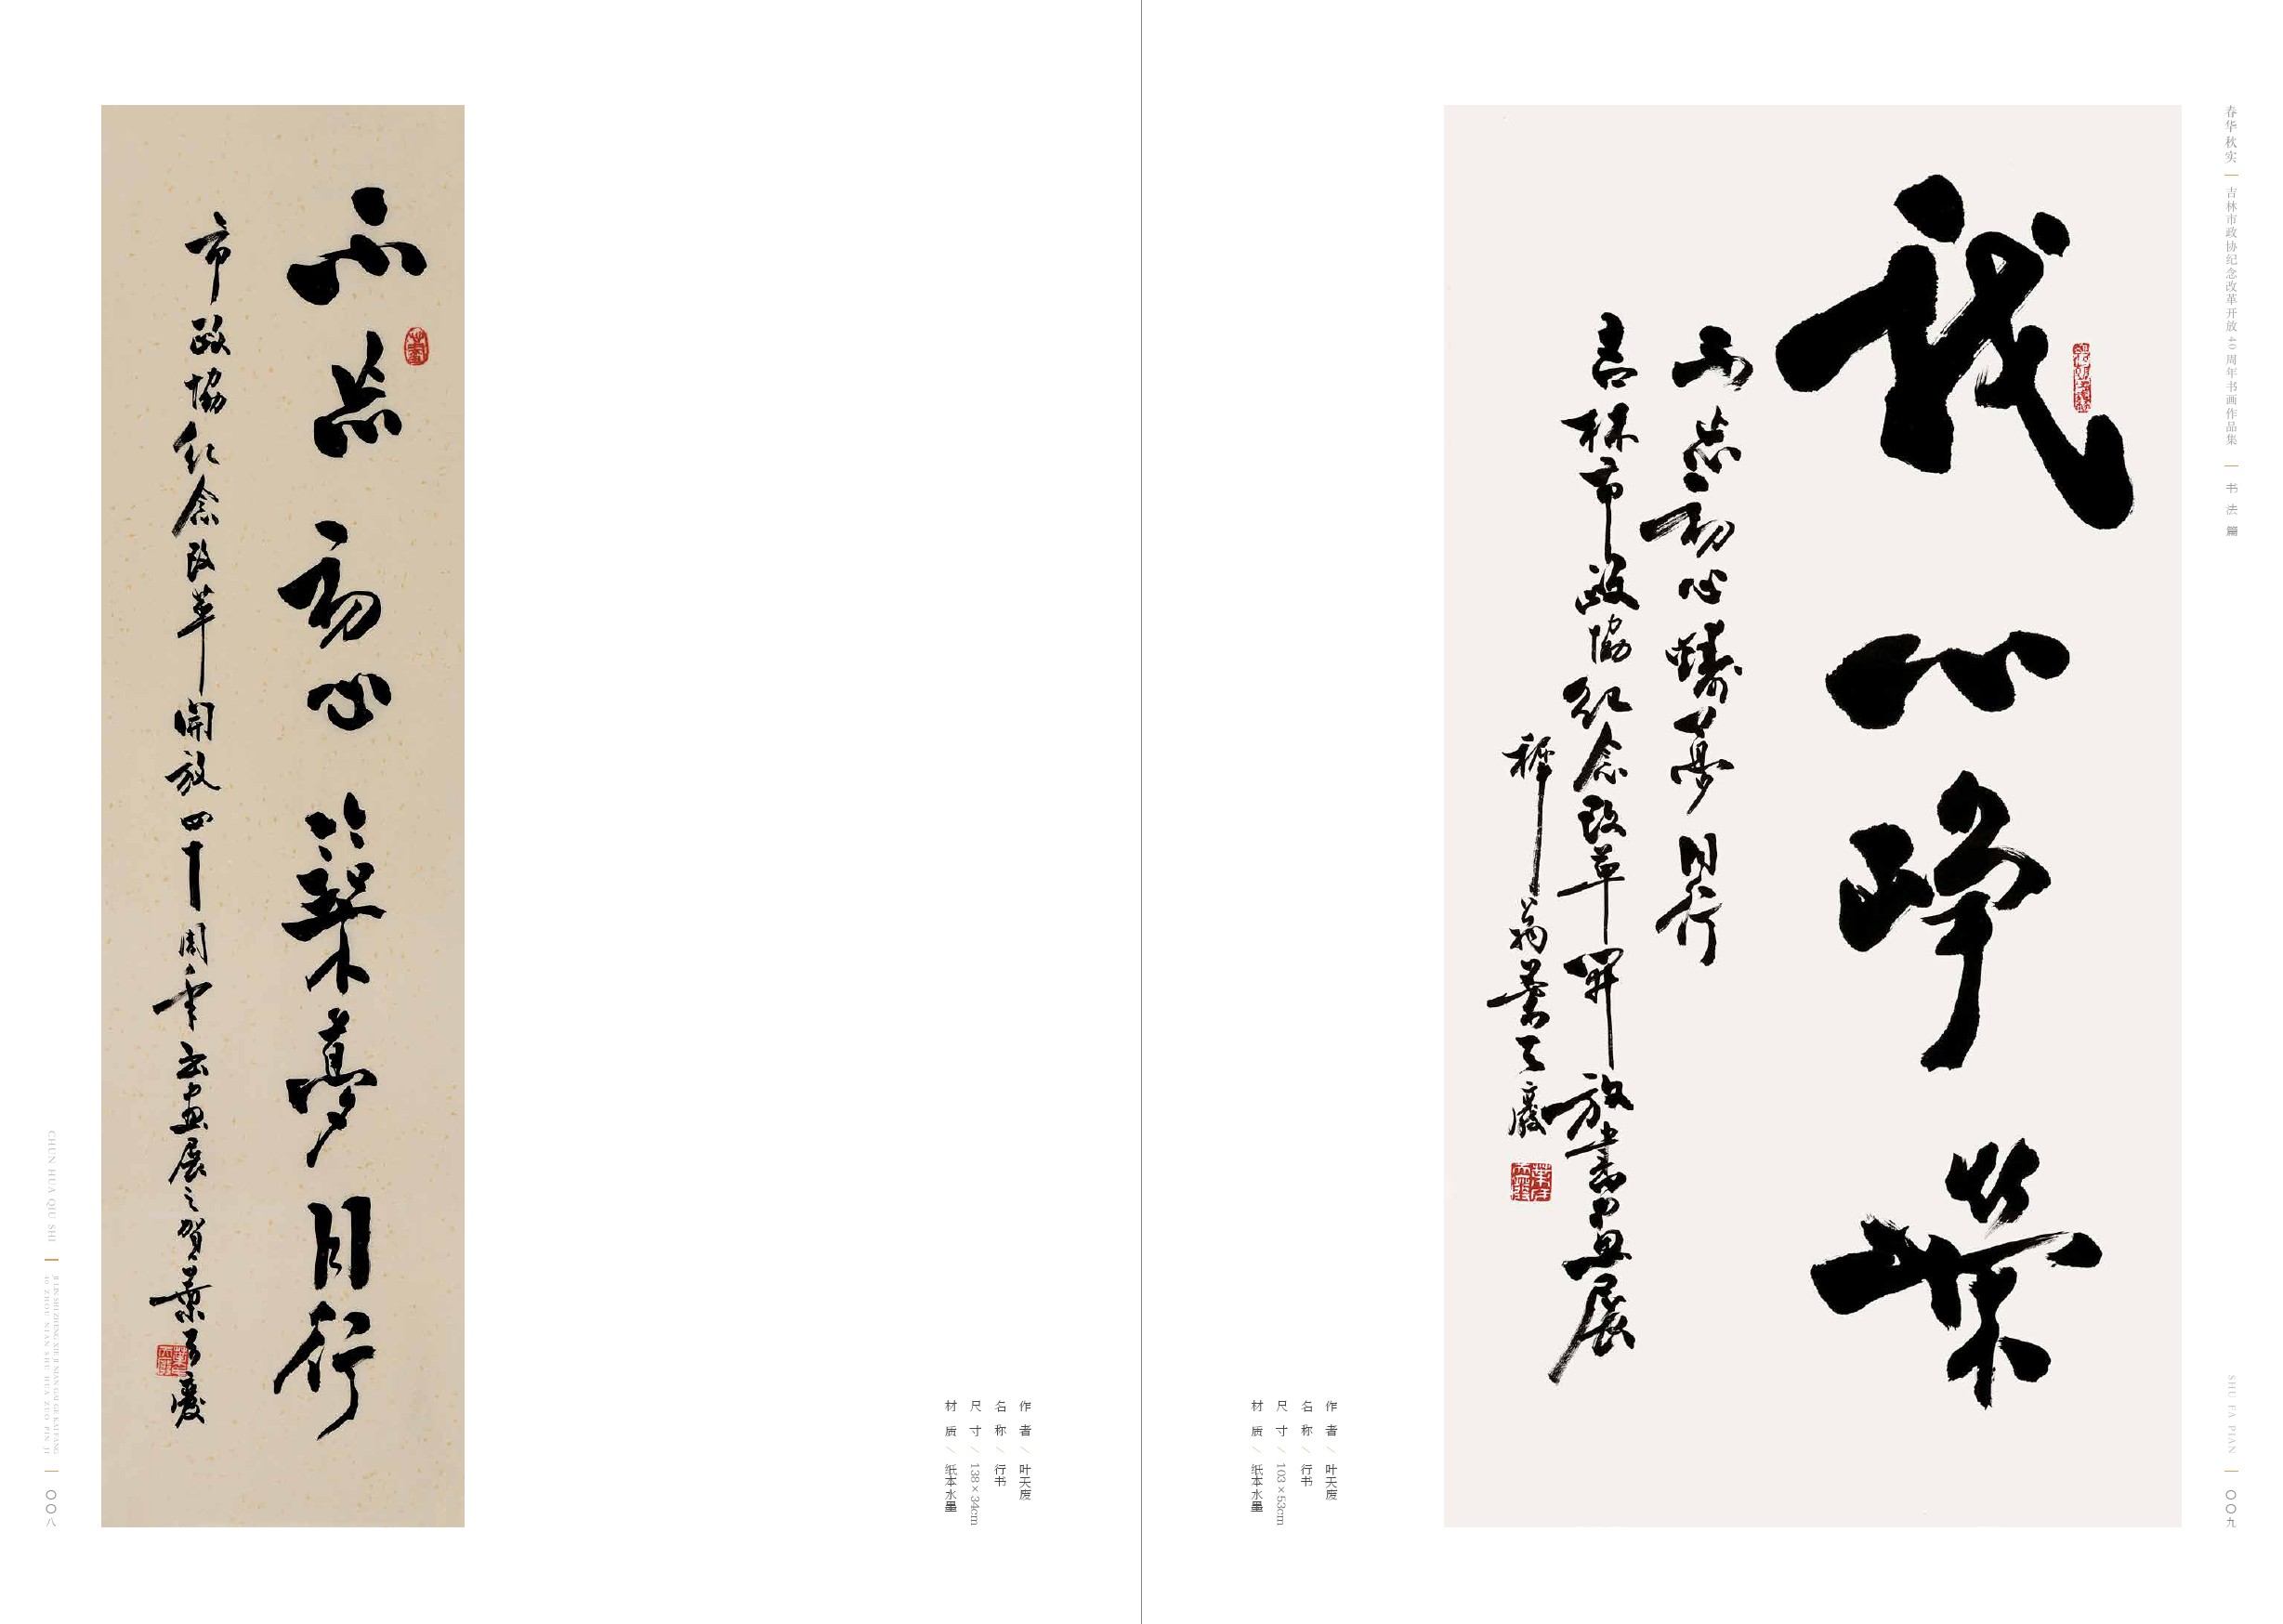 不忘初心築夢同行
市政協紀念改革開放四十周年书畫展之贺葉天廢
作者/叶天废
名称/行书
尺寸/138×34cm
材质/纸本水墨
CHUN HUA QIU SHI
JI LIN SHI ZHENG XIE JI NIAN GAI GE KAI FANG
40 ZHOU NIAN SHU HUA ZUO PIN JI
〇〇八
春华秋实
吉林市政协纪念改革开放40周年书画作品集
书法篇
SHU FA PIAN
〇〇九
我心崢嶸
不忘初心鑄夢同行
吉林市政協紀念改革開放書畫展
翁葉天廢
作者/叶天废
名称/行书
尺寸/103×53cm
材质/纸本水墨